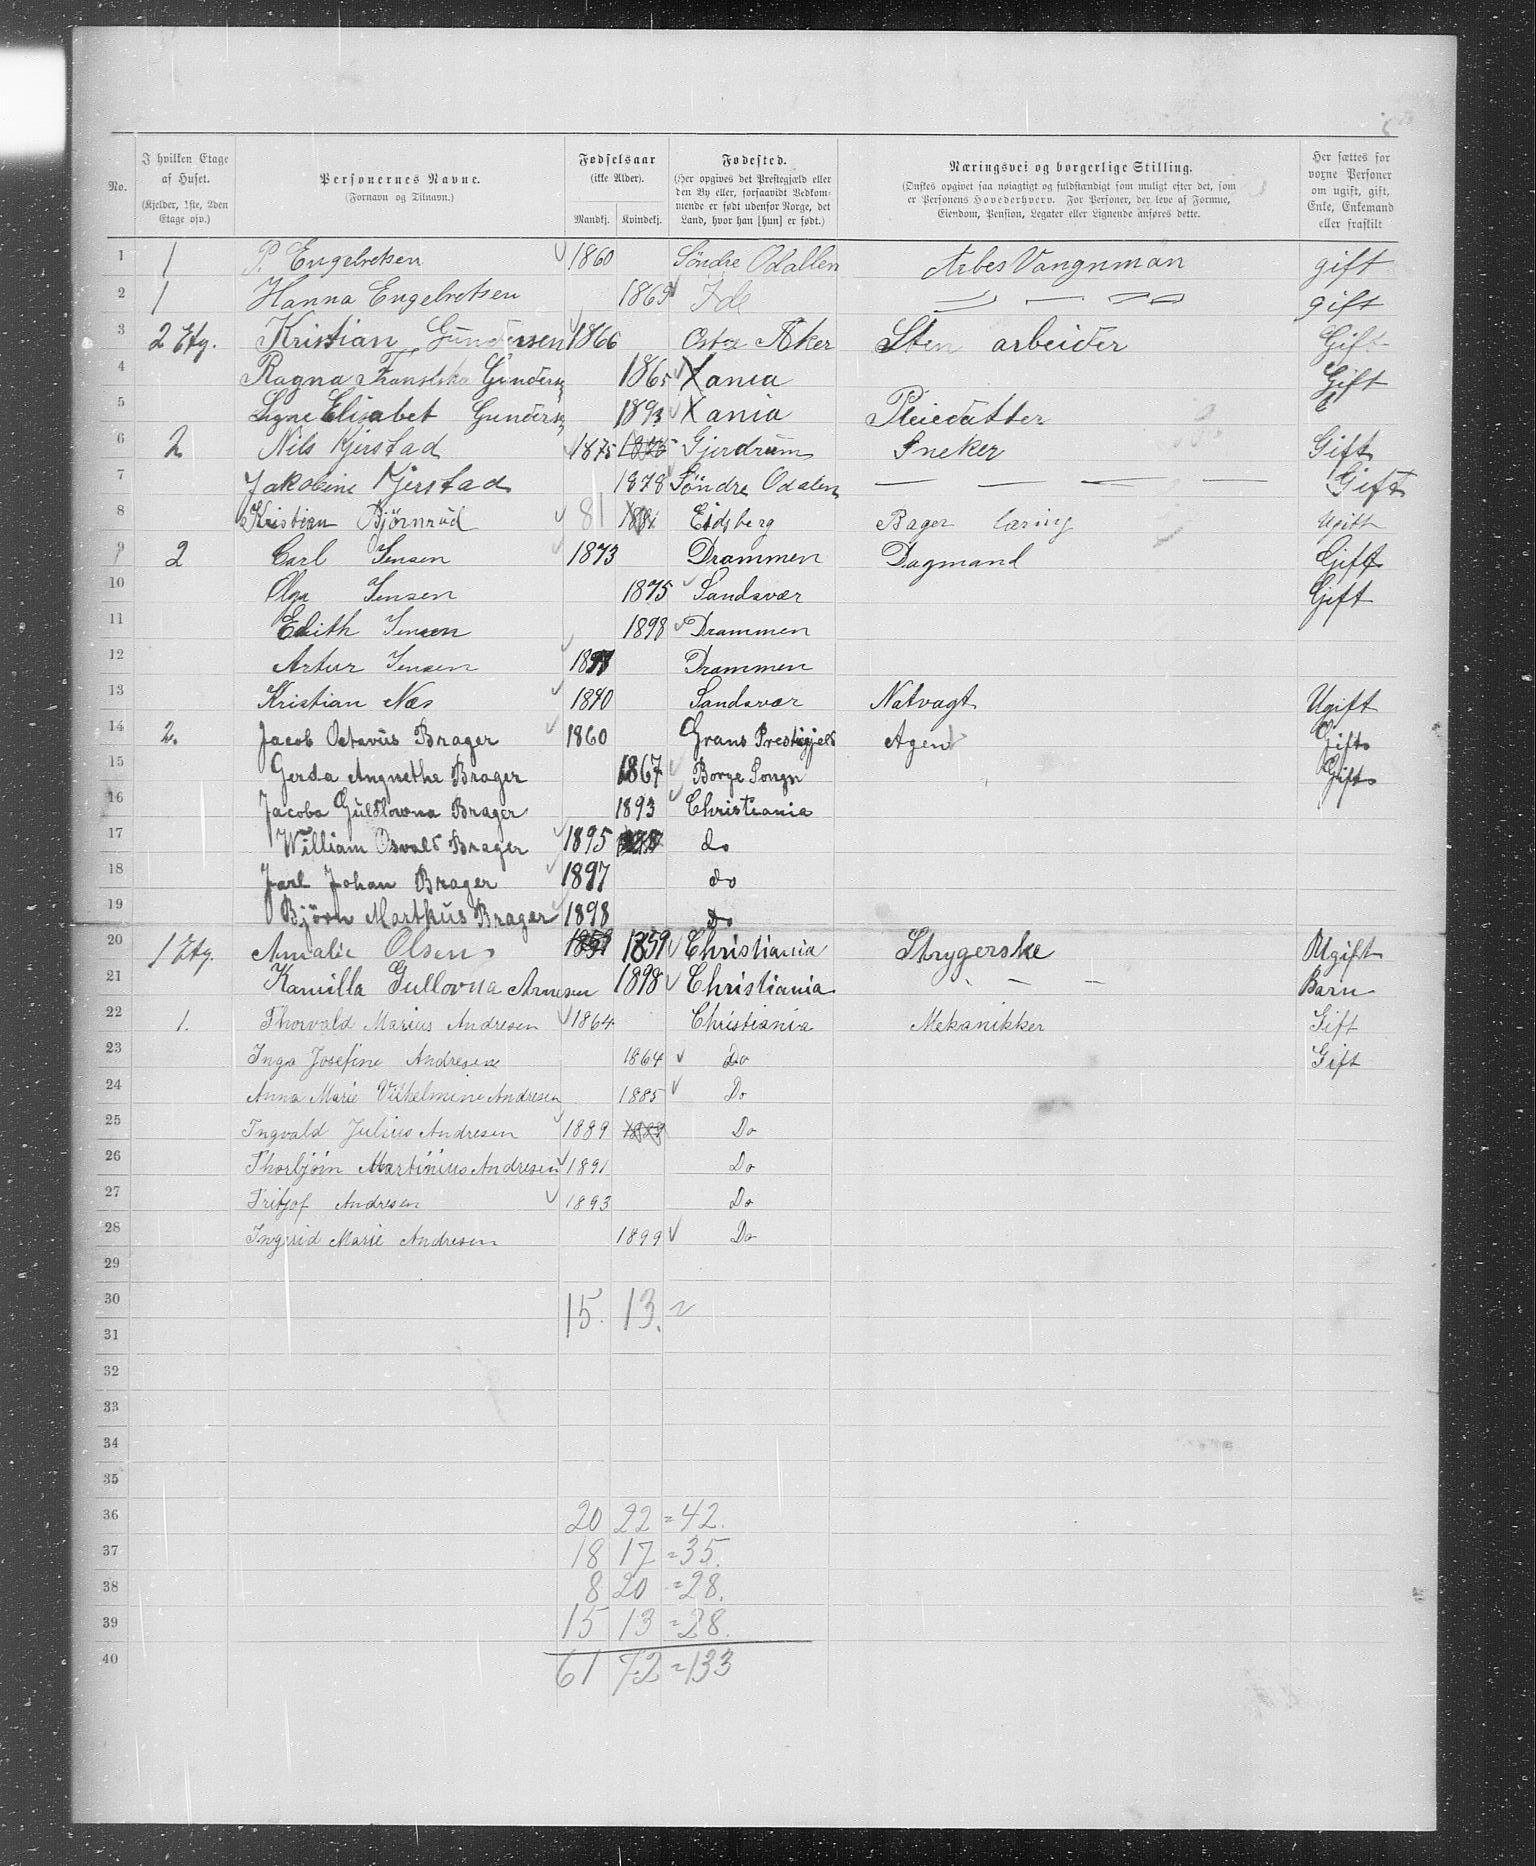 No. | I hvilken Etage af Huset. (Kjelder, 1ste, 2den Etage osv.) | Personernes Navne. (Fornavn og Tilnavn.) | Fødselsaar (ikke Alder). Mandkj. | Kvindekj. | Fødested. (Her opgives det Prestegjæld eller den By eller, forsaavidt Vedkommende er født udenfor Norge, det Land, hvor han [hun] er født.) | Næringsvei og borgerlige Stilling. (Ønskes opgivet saa nøiagtigt og fuldstændigt som muligt efter det, som er Personens Hovederhverv. For Personer, der leve af Formue, Eiendom, Pension, Legater eller Lignende anføres dette. | Her sættes for voxne Personer om ugift, gift, Enke, Enkemand eller fraskilt
1 1 P. Engelretsen 1860 Söndre Odallen Arbes Vangnman gift
2 1 Hanna Engelretsen 1869 Ide gift
3 2 Etg. Kristian Gundersen 1866 Østre Aker Sten arbeider Gift
4 Ragna Fransiska Gunders 1865 Xania Gift
5 Signe Elisabet Gunders 1893 Xania Pleiedatter
6 2 Nils Kjerstad 1875 Gjerdrum Sneker Gift
7 Jakobine Kjerstad 1878 Söndre Odalen — — — — Gift
8 Kristian Björnrud 81 Eidsberg Bager læring Ugift
9 2 Carl Jensen 1873 Drammen Dagmand Gift
10 Olga Jensen 1875 Sandsvær Gift
11 Edith Jensen 1898 Drammen
12 Artur Jensen Drammen
13 Kristian Næs 1840 Sandsvær Natvagt Ugift
14 2. Jacob Octavus Brager 1860 Grans Prestegjeld Agent Gift
15 Gerda Angnethe Brager 1867 Borge Songn Gift
16 Jacoba Guldlovna Brager 1893 Christiania
17 William Osvald Brager 1895 do
18 Jarl Johan Brager 1897 do
19 Björn Marthus Brager 1898 Do
20 1 Etg. Amalie Olsen 1859 Christiania Strygerske Ugift
21 Kamilla Gullovna Arnesen 1898 Christiania - - - Barn
22 1. Thorvald Marius Andresen 1864 Christiania Mekanikker Gift
23 Inga Josefine Andresen 1864 Do Gift
24 Anna Marie Vilhelmine Andresen 1885 Do
25 Ingvald Julius Andresen 1889 Do
26 Thorbjörn Martinius Andresen 1891 Do
27 Fritjof Andresen 1893 Do
28 Ingerid Marie Andresen 1899 Do
29
30 15. 13.
31
32
33
34
35
36 20 22 = 42.
37 18 17 = 35.
38 8 20 = 28.
39 15 13 = 28.
40 61 72 = 133